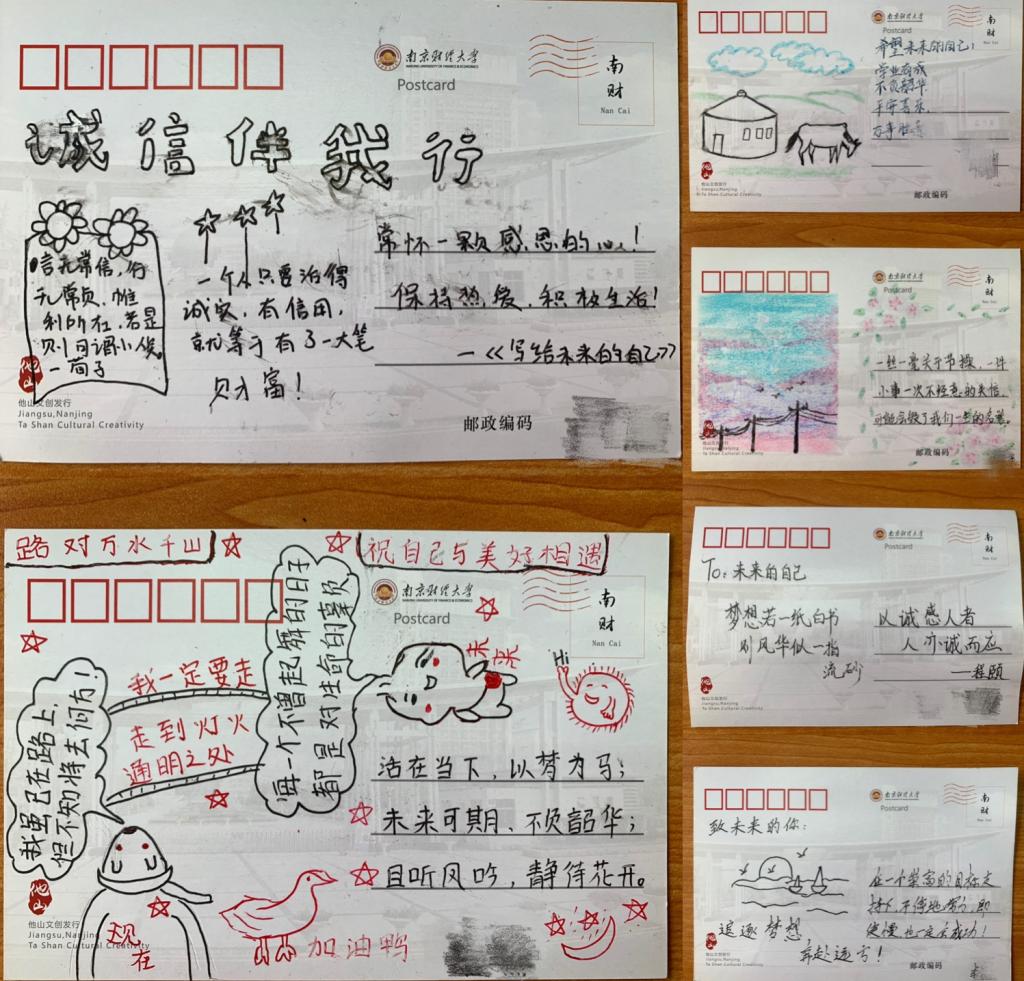 南京财经大学
NANJING UNIVERSITY OF FINANCE & ECONOMICS
Postcard
南
财
Nan Cai
诚信伴我行
言无常信，行
无常贞，惟
利所在，若是
则可谓小人矣
—荀子
一个人只要活得
诚实，有信用，
就等于有了一大笔
财富！
常怀一颗感恩的心！
保持热爱，积极生活！
—《写给未来的自己》
他山
他山文创发行
Jiangsu,Nanjing
Ta Shan Cultural Creativity
邮政编码
路对万水千山
祝自己与美好相遇
南京财经大学
NANJING UNIVERSITY OF FINANCE & ECONOMICS
Postcard
南
财
Nan Cai
我虽已在路上，
但不知将去何方！
我一定要走
走到灯火
通明之处
每一个不曾起舞的日子
都是对生命的辜负
未来
Hi
活在当下，以梦为马；
未来可期、不负韶华；
且听风吟，静待花开。
现在
加油鸭
他山
他山文创发行
Jiangsu,Nanjing
Ta Shan Cultural Creativity
南京财经大学
Postcard
南
财
Nan Cai
希望未来的自己：
学业有成
不负韶华
平安喜乐，
万事胜意
他山文创发行
Jiangsu,Nanjing
Ta Shan Cultural Creativity
邮政编码
南京财经大学
Postcard
南
财
Nan Cai
一丝一毫关乎节操，一件
小事一次不经意的失信，
可能会毁了我们一生的名誉。
他山文创发行
Jiangsu,Nanjing
Ta Shan Cultural Creativity
邮政编码
南京财经大学
Postcard
南
财
Nan Cai
To：未来的自己
梦想若一纸白书
则风华似一指
流砂
以诚感人者
人亦诚而应
—程颐
他山文创发行
Jiangsu,Nanjing
Ta Shan Cultural Creativity
南京财经大学
Postcard
南
财
Nan Cai
致未来的你：
追逐梦想，
奔赴远方！
在一个崇高的目标支
持下，不停地努力，即
使慢，也一定会成功！
他山文创发行
Jiangsu,Nanjing
Ta Shan Cultural Creativity
邮政编码